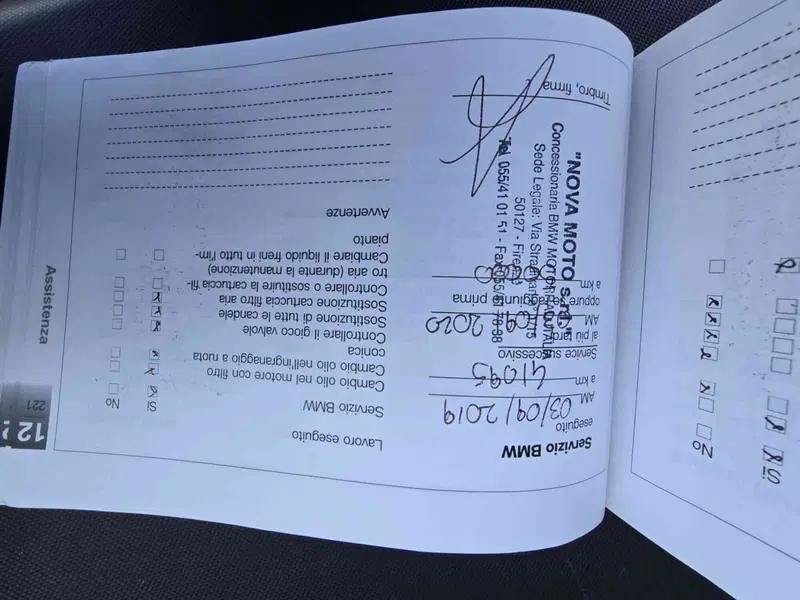 Servizio BMW
eseguito
AM 03/09/2019
a km 41095
Service successivo
al più tardi
AM 09 2020
oppure se raggiunti prima
a km
"NOVA MOTO s.r.l."
Concessionaria BMW MOTORRAD ITALIA
Sede Legale: Via
50127 - Firenze
Tel 055/41 01 51 - Fax 055/
Timbro, firma
Lavoro eseguito
Sì No
Servizio BMW
Cambio olio nel motore con filtro
Cambio olio nell'ingranaggio a ruota
conica
Controllare il gioco valvole
Sostituzione di tutte le candele
Sostituzione cartuccia filtro aria
Controllare o sostituire la cartuccia fil-
tro aria (durante la manutenzione)
Cambiare il liquido freni in tutto l'im-
pianto
Avvertenze
12
221
Assistenza
Sì No